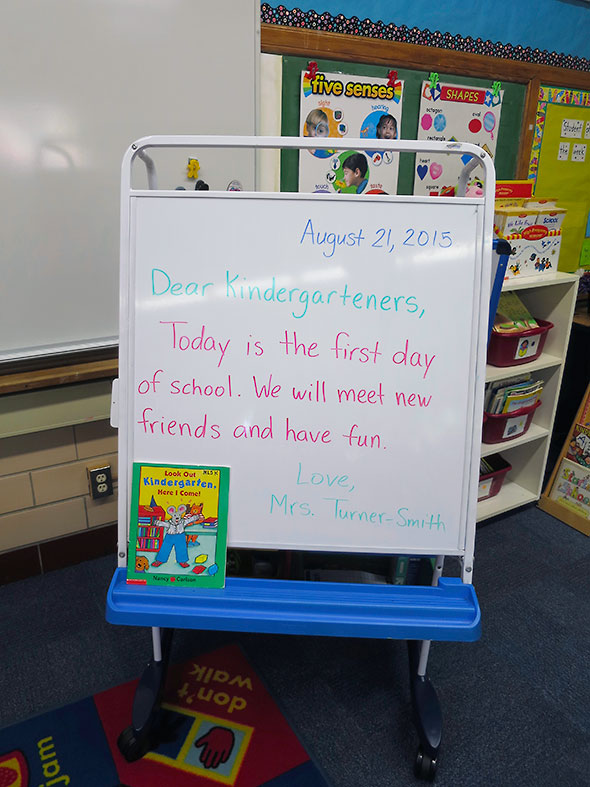 five senses
sight
hearing
touch
taste
SHAPES
octagon
oval
heart
square
Student
of
the
week
SCHOOL
August 21, 2015
Dear Kindergarteners,
Today is the first day
of school. We will meet new
friends and have fun.
Love,
Mrs. Turner-Smith
Look Out
Kindergarten,
Here I Come!
Nancy Carlson
don't
walk
jam